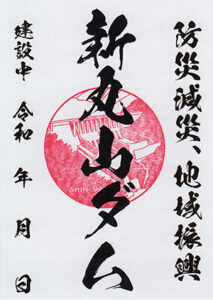 防災減災、地域振興
新丸山ダム
建設中 令和 年 月 日
SHIN-M